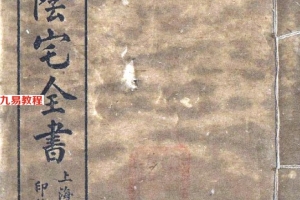 陰宅全書
上海
印
九易教程